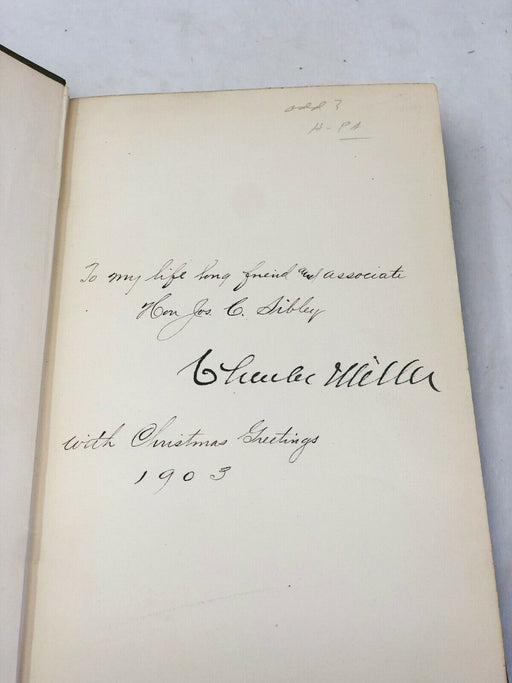 H - PA
To my life long friend and associate
Hon Jos. C. Sibley
Charles Miller
with Christmas Greetings
1903